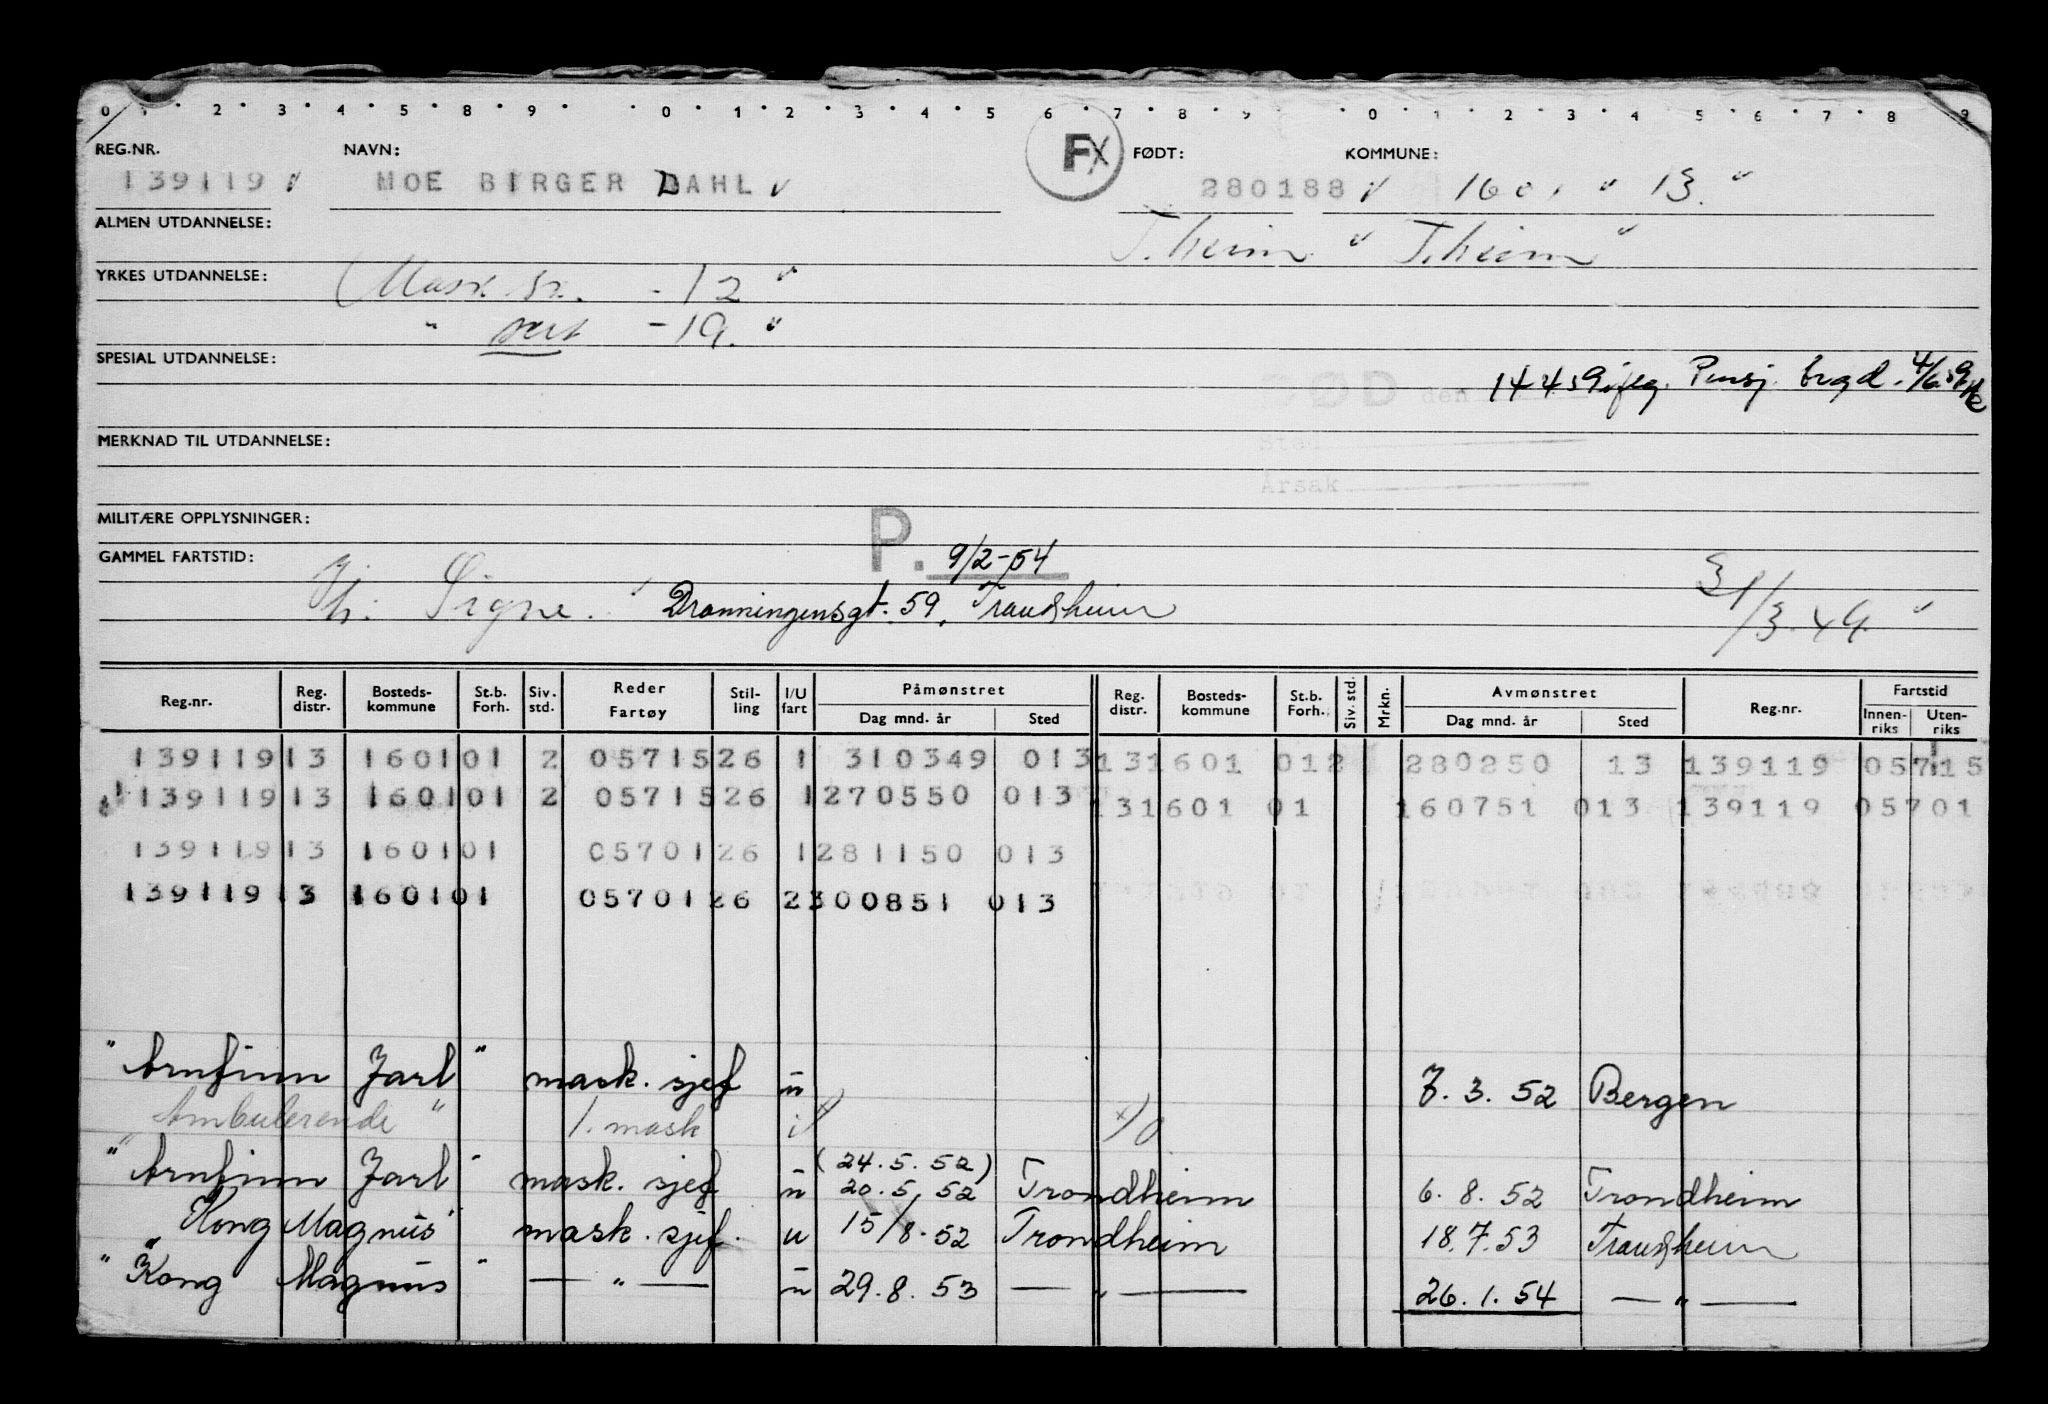 0 · 1 · 2 · 3 · 4 · 5 · 8 · 9 · · 0 · 1 · 2 · 3 · 4 · 5 · 6 · 7 · 8 · 9 · · 0 · 1 · 2 · 3 · 4 · 5 · 6 · 7 · 8 · 9
REG.NR. NAVN: FX FØDT: KOMMUNE:
139119 MOE BIRGER DAHL 280188 1601 " 13. "
ALMEN UTDANNELSE: T.heim " T.heim "
YRKES UTDANNELSE: Mask. - 12 "
" sert - 19. "
SPESIAL UTDANNELSE:
14459 Pensj. 4/6.59
DØD den
MERKNAD TIL UTDANNELSE: Sted
Årsak
MILITÆRE OPPLYSNINGER: P. 9/2-54
GAMMEL FARTSTID: Signe. Dronningensgt. 59, Trondheim 31/3.49. "
Reg.nr. Reg. distr. Bosteds-kommune St.b. Forh. Siv. std. Reder Fartøy Stil-ling I/U fart Påmønstret Dag mnd. år Sted Reg. distr. Bosteds-kommune St.b. Forh. Siv. std. Mrkn. Avmønstret Dag mnd. år Sted Reg.nr. Fartstid Innen-riks Uten-riks
139119 13 1601 01 2 05715 26 1 310349 013 13 1601 01 2 280250 13 139119 05715
139119 13 1601 01 2 05715 26 1 270550 013 13 1601 01 160751 013 139119 05701
139119 13 1601 01 05701 26 1 281150 013
139119 13 1601 01 05701 26 2 300851 013
" Arnfinn Jarl " mask. sjef u 7. 3. 52 Bergen
Ambulerende " 1. mask i x) x)
(24.5.52)
" Arnfinn Jarl " mask. sjef u 20.5.52 Trondheim 6. 8. 52 Trondheim
" Kong Magnus " mask. sjef. u 15/8.52 Trondheim 18.7.53 Trondheim
" Kong Magnus " — " — u 29.8.53 — " — 26.1.54 — " —